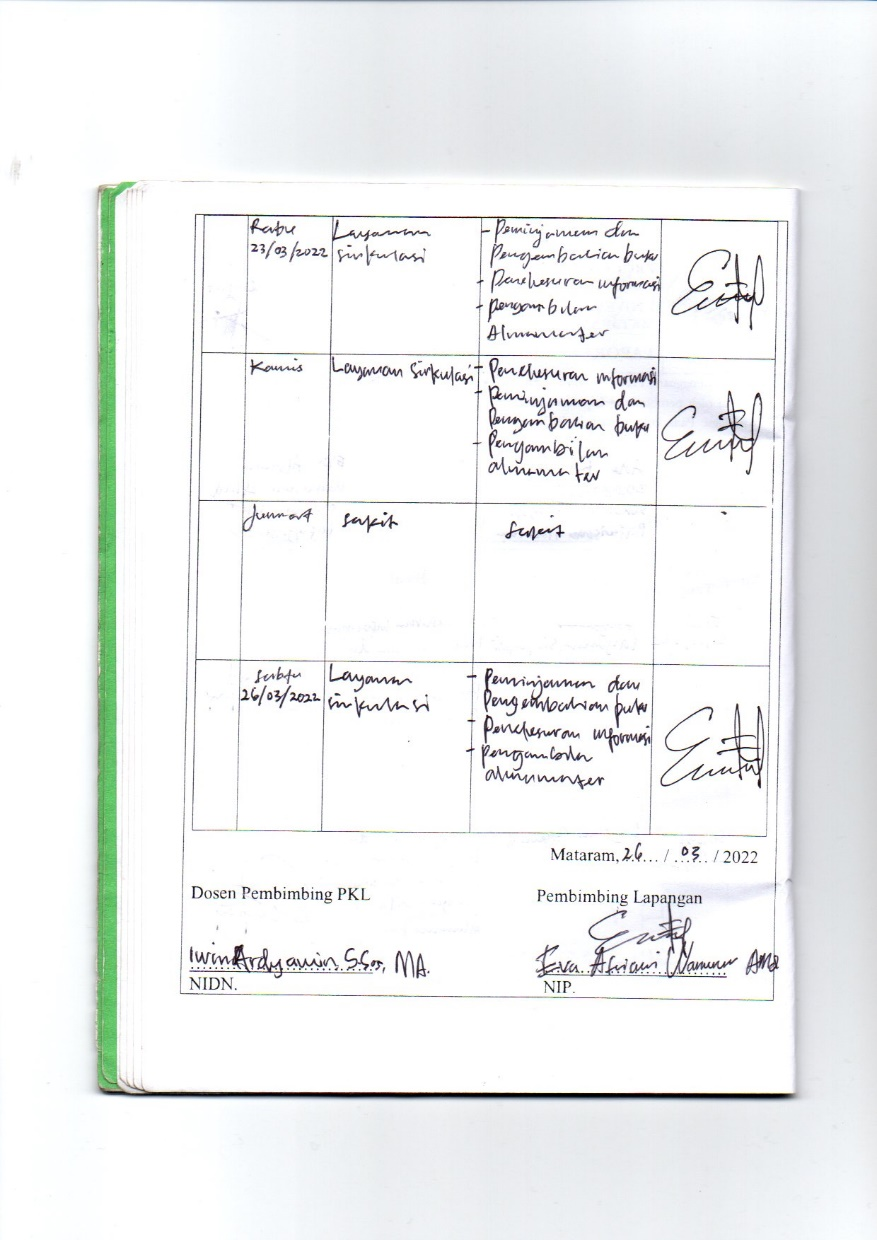 Rabu
23/03/2022
Layanan
sirkulasi
- Peminjaman dan
Pengembalian buku
- Penelusuran informasi
- pengambilan
Almamater
Kamis
Layanan Sirkulasi
- Penelusuran informasi
- peminjaman dan
Pengembalian buku
- Pengambilan
almamater
Jummat
sakit
sakit
Sabtu
26/03/2022
Layanan
sirkulasi
- Peminjaman dan
Pengembalian buku
- Penelusuran informasi
- pengambilan
almamater
Mataram, 26... / .03.. / 2022
Dosen Pembimbing PKL
Pembimbing Lapangan
Iwin Ardyawin S.Sos, MA.
Eva Afriani
NIDN.
NIP.